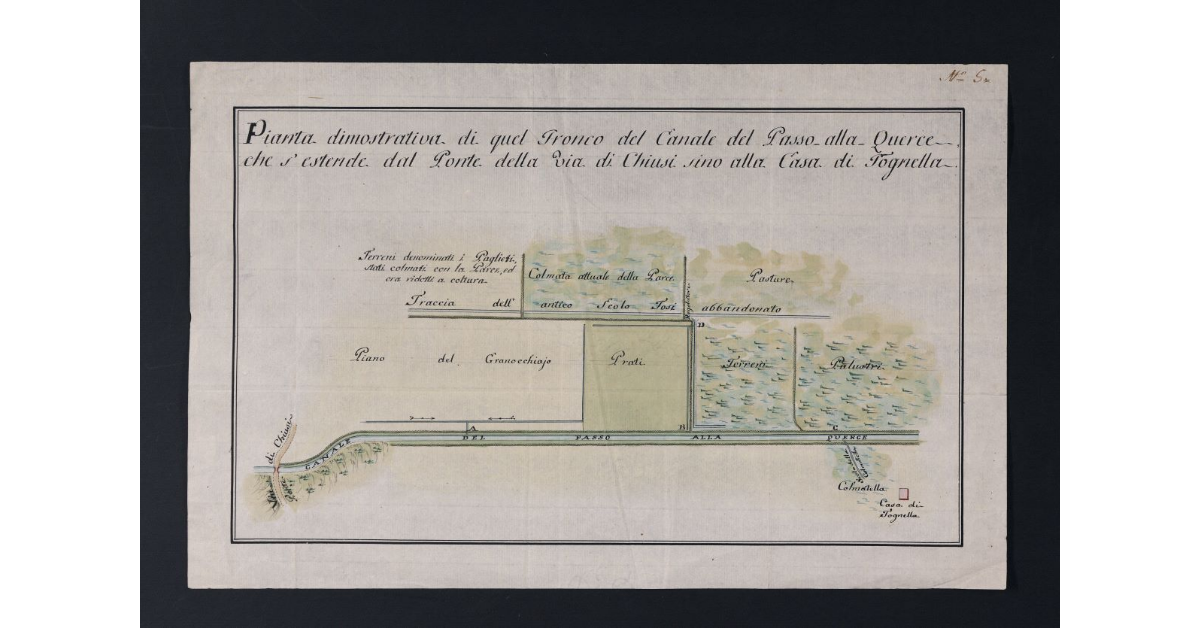 N.º 5.
Pianta dimostrativa di quel Tronco del Canale del Passo alla Querce
che s'estende dal Ponte della via di Chiusi sino alla Casa di Tognella
Terreni denominati i Paglieti,
stati colmati con la Parce, ed
ora ridotti a coltura.
Colmata attuale della Parce
Pasture
Traccia dell' antico Scolo Tosi abbandonato
Piano del Granocchiajo
Prati
Terreni Palustri
A
B
C
D
CANALE DEL PASSO ALLA QUERCE
Via di Chiusi
Ponte
Colmatella
Casa di
Tognella